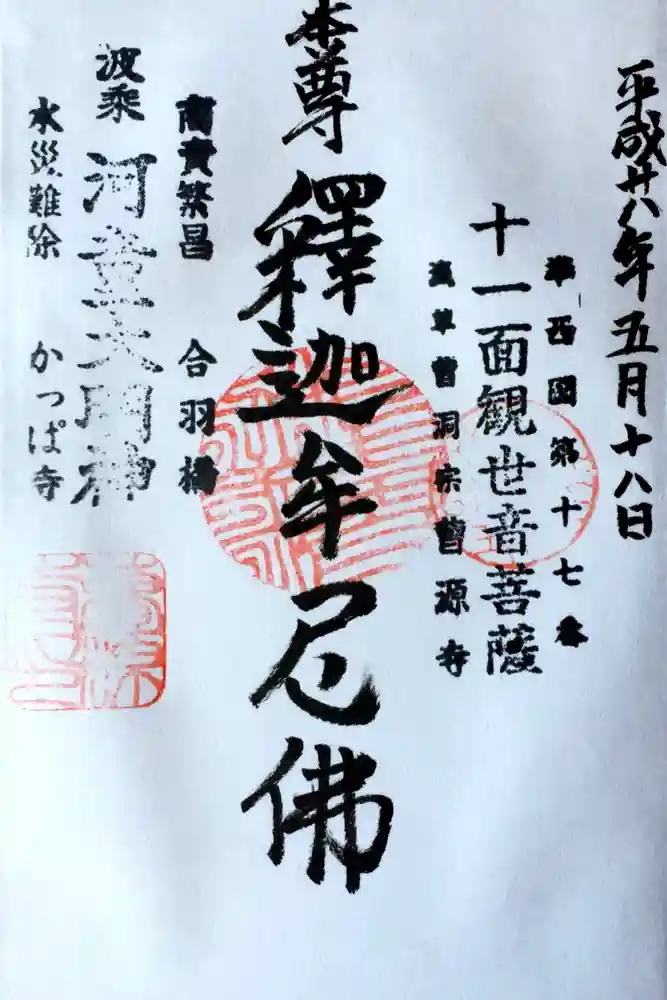 平成廿八年五月十八日
西国第十七番
十一面観世音菩薩
浅草曹洞宗曹源寺
本尊
釋迦牟尼佛
商賣繁昌 合羽橋
波乗
河童大明神
水災難除 かっぱ寺